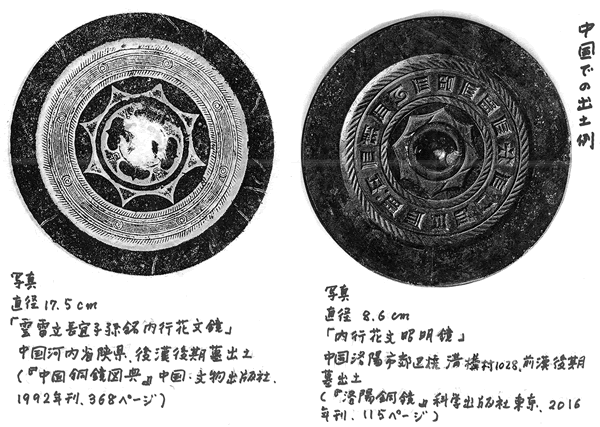 中国での出土例
写真
直径 17.5 cm
「雲雷文長宜子孫銘内行花文鏡」
中国河内省陝県、後漢後期墓出土
(『中国銅鏡図典』中国・文物出版社、
1992年刊、368ページ)
写真
直径 8.6 cm
「内行花文昭明鏡」
中国洛陽市郊 村1028、前漢後期
墓出土
(『洛陽銅鏡』科学出版社東京、2016
年刊、115ページ)